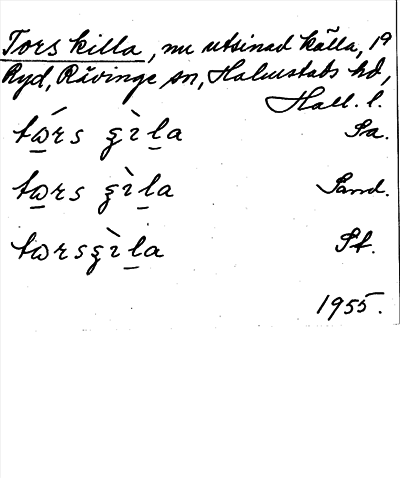 Tors killa, nu utsinad källa, 19
Ryd, Rävinge sn, Halmstads hd,
Hall. l.
tώ̲rs ʒìl̲a Sa.
tω̲rs ʒìl̲a Sand.
tωrsʒìl̲a Sf.
1955.